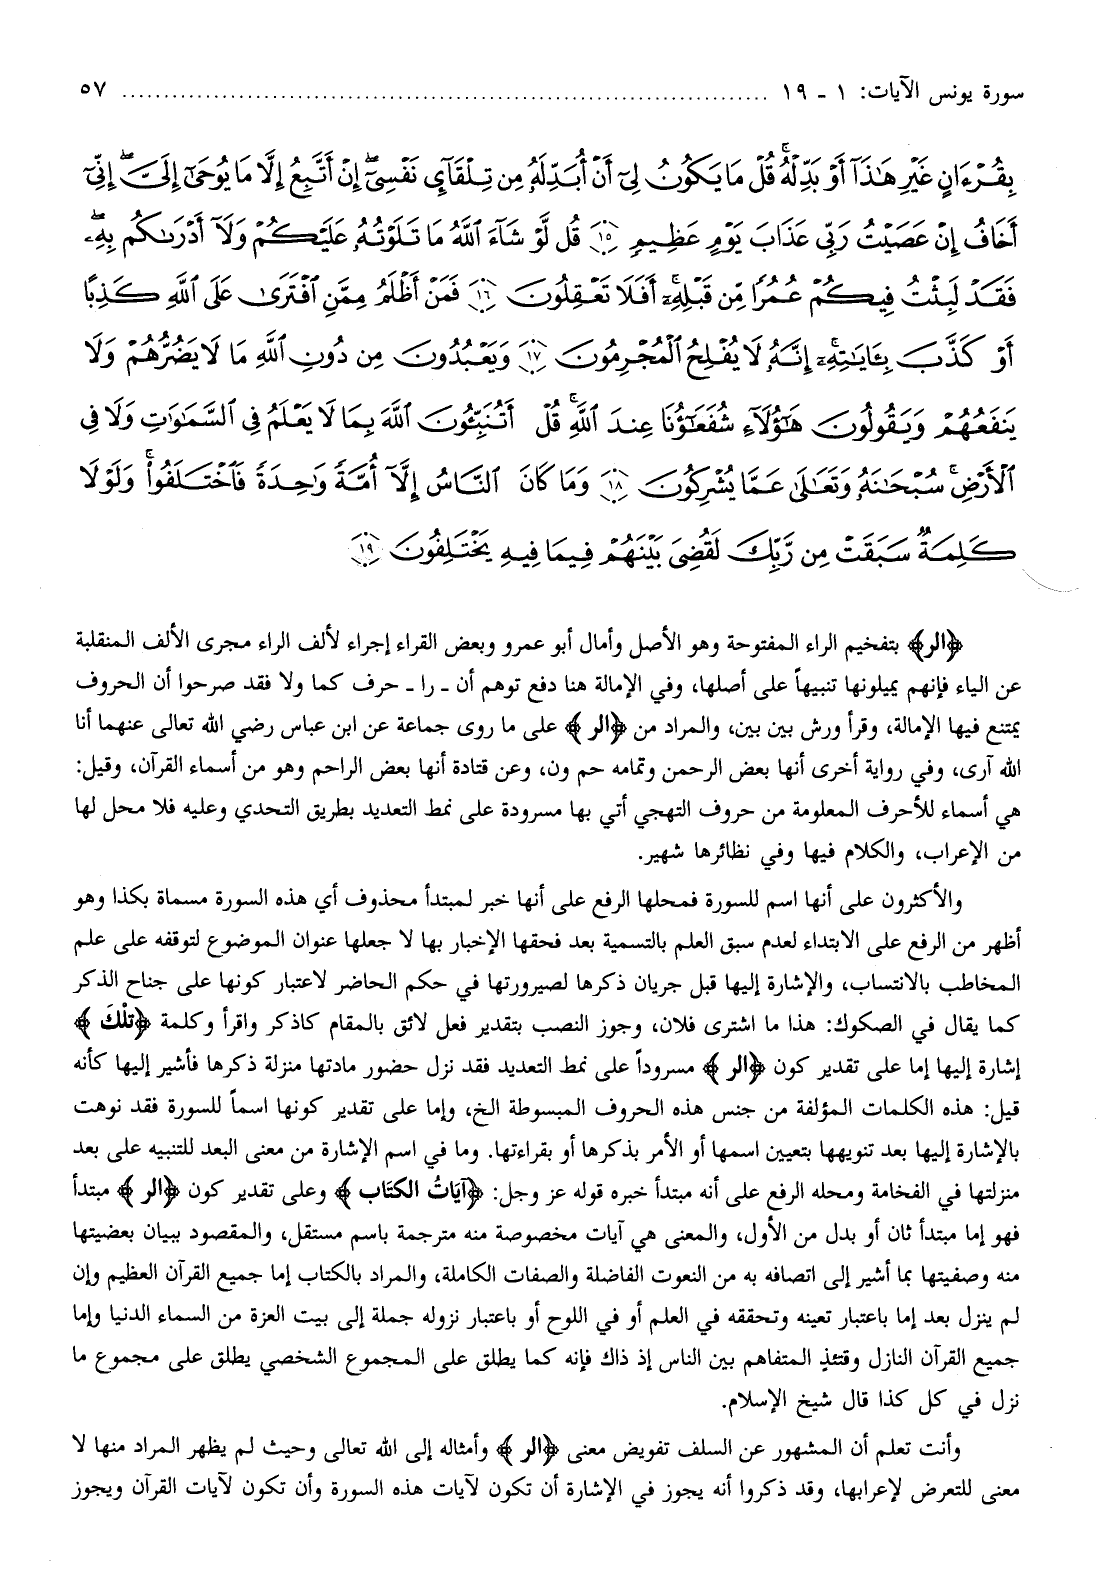 سورة يونس الآيات: ١ ـ ١٩ ........................................................................ ٥٧
بِقُرْءَانٍ غَيْرِ هَٰذَآ أَوْ بَدِّلْهُ ۚ قُلْ مَا يَكُونُ لِىٓ أَنْ أُبَدِّلَهُۥ مِن تِلْقَآئِ نَفْسِىٓ ۖ إِنْ أَتَّبِعُ إِلَّا مَا يُوحَىٰٓ إِلَىَّ ۖ إِنِّىٓ
أَخَافُ إِنْ عَصَيْتُ رَبِّى عَذَابَ يَوْمٍ عَظِيمٍ ١٥ قُل لَّوْ شَآءَ ٱللَّهُ مَا تَلَوْتُهُۥ عَلَيْكُمْ وَلَآ أَدْرَىٰكُم بِهِۦ ۖ
فَقَدْ لَبِثْتُ فِيكُمْ عُمُرًا مِّن قَبْلِهِۦٓ ۚ أَفَلَا تَعْقِلُونَ ١٦ فَمَنْ أَظْلَمُ مِمَّنِ ٱفْتَرَىٰ عَلَى ٱللَّهِ كَذِبًا
أَوْ كَذَّبَ بِـَٔايَٰتِهِۦٓ ۚ إِنَّهُۥ لَا يُفْلِحُ ٱلْمُجْرِمُونَ ١٧ وَيَعْبُدُونَ مِن دُونِ ٱللَّهِ مَا لَا يَضُرُّهُمْ وَلَا
يَنفَعُهُمْ وَيَقُولُونَ هَٰٓؤُلَآءِ شُفَعَٰٓؤُنَا عِندَ ٱللَّهِ ۚ قُلْ أَتُنَبِّـُٔونَ ٱللَّهَ بِمَا لَا يَعْلَمُ فِى ٱلسَّمَٰوَٰتِ وَلَا فِى
ٱلْأَرْضِ ۚ سُبْحَٰنَهُۥ وَتَعَٰلَىٰ عَمَّا يُشْرِكُونَ ١٨ وَمَا كَانَ ٱلنَّاسُ إِلَّآ أُمَّةً وَٰحِدَةً فَٱخْتَلَفُوا۟ ۚ وَلَوْلَا
كَلِمَةٌ سَبَقَتْ مِن رَّبِّكَ لَقُضِىَ بَيْنَهُمْ فِيمَا فِيهِ يَخْتَلِفُونَ ١٩
﴿الر﴾ بتفخيم الراء المفتوحة وهو الأصل وأمال أبو عمرو وبعض القراء إجراء لألف الراء مجرى الألف المنقلبة
عن الياء فإنهم يميلونها تنبيهاً على أصلها، وفي الإمالة هنا دفع توهم أن ـ را ـ حرف كما ولا فقد صرحوا أن الحروف
يمتنع فيها الإمالة، وقرأ ورش بين بين، والمراد من ﴿الر﴾ على ما روى جماعة عن ابن عباس رضي الله تعالى عنهما أنا
الله آرى، وفي رواية أخرى أنها بعض الرحمن وتمامه حم ون، وعن قتادة أنها بعض الراحم وهو من أسماء القرآن، وقيل:
هي أسماء للأحرف المعلومة من حروف التهجي أتي بها مسرودة على نمط التعديد بطريق التحدي وعليه فلا محل لها
من الإعراب، والكلام فيها وفي نظائرها شهير.
والأكثرون على أنها اسم للسورة فمحلها الرفع على أنها خبر لمبتدأ محذوف أي هذه السورة مسماة بكذا وهو
أظهر من الرفع على الابتداء لعدم سبق العلم بالتسمية بعد فحقها الإخبار بها لا جعلها عنوان الموضوع لتوقفه على علم
المخاطب بالانتساب، والإشارة إليها قبل جريان ذكرها لصيرورتها في حكم الحاضر لاعتبار كونها على جناح الذكر
كما يقال في الصكوك: هذا ما اشترى فلان، وجوز النصب بتقدير فعل لائق بالمقام كاذكر واقرأ وكلمة ﴿تلْكَ﴾
إشارة إليها إما على تقدير كون ﴿الر﴾ مسروداً على نمط التعديد فقد نزل حضور مادتها منزلة ذكرها فأشير إليها كأنه
قيل: هذه الكلمات المؤلفة من جنس هذه الحروف المبسوطة الخ، وإما على تقدير كونها اسماً للسورة فقد نوهت
بالإشارة إليها بعد تنويهها بتعيين اسمها أو الأمر بذكرها أو بقراءتها. وما في اسم الإشارة من معنى البعد للتنبيه على بعد
منزلتها في الفخامة ومحله الرفع على أنه مبتدأ خبره قوله عز وجل: ﴿آيَاتُ الكتَاب﴾ وعلى تقدير كون ﴿الر﴾ مبتدأ
فهو إما مبتدأ ثان أو بدل من الأول، والمعنى هي آيات مخصوصة منه مترجمة باسم مستقل، والمقصود ببيان بعضيتها
منه وصفيتها بما أشير إلى اتصافه به من النعوت الفاضلة والصفات الكاملة، والمراد بالكتاب إما جميع القرآن العظيم وإن
لم ينزل بعد إما باعتبار تعينه وتحققه في العلم أو في اللوح أو باعتبار نزوله جملة إلى بيت العزة من السماء الدنيا وإما
جميع القرآن النازل وقتئذٍ المتفاهم بين الناس إذ ذاك فإنه كما يطلق على المجموع الشخصي يطلق على مجموع ما
نزل في كل كذا قال شيخ الإسلام.
وأنت تعلم أن المشهور عن السلف تفويض معنى ﴿الر﴾ وأمثاله إلى الله تعالى وحيث لم يظهر المراد منها لا
معنى للتعرض لإعرابها، وقد ذكروا أنه يجوز في الإشارة أن تكون لآيات هذه السورة وأن تكون لآيات القرآن ويجوز